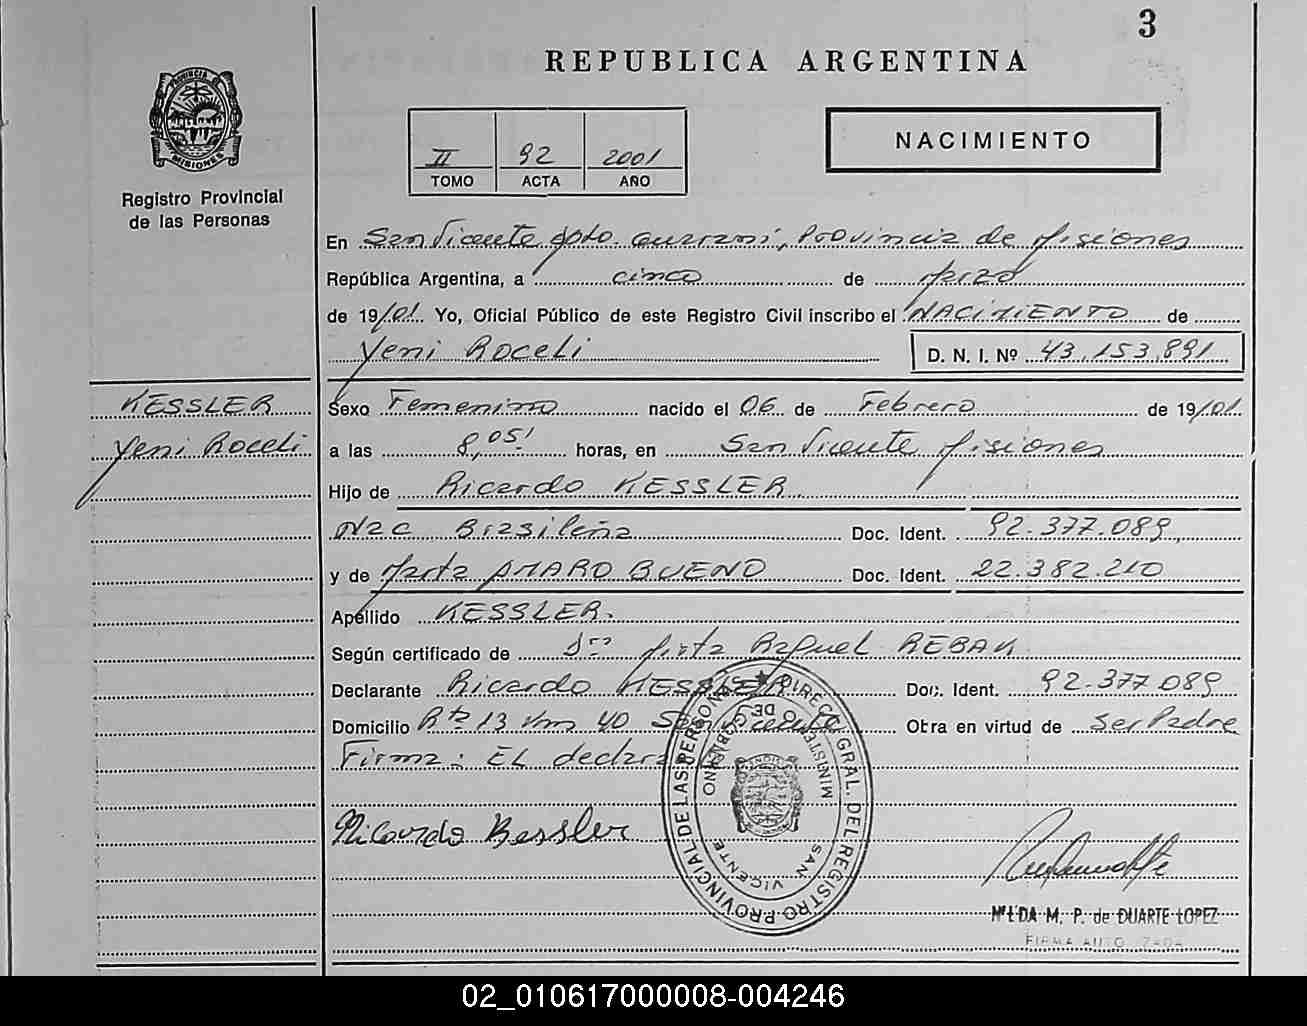 3
REPUBLICA ARGENTINA
PROVINCIA DE
MISIONES
Registro Provincial
de las Personas
II 92 2001
TOMO ACTA AÑO
NACIMIENTO
En San Vicente Dpto. Guarani, Provincia de Misiones
República Argentina, a cinco de Marzo
de 19/01. Yo, Oficial Público de este Registro Civil inscribo el NACIMIENTO de
Yeni Roceli D. N. I. Nº 43.153.891
KESSLER
Yeni Roceli
Sexo Femenino nacido el 06 de Febrero de 19/01.
a las 8,05' horas, en San Vicente Misiones
Hijo de Ricardo KESSLER.
Nac Brasileña Doc. Ident. 92.377.089
y de Marta AMARO BUENO Doc. Ident. 22.382.210
Apellido KESSLER.
Según certificado de Dra Mirta Raquel REBAK
Declarante Ricardo KESSLER. Doc. Ident. 92.377.089
Domicilio Rta 13 Km 40 San Vicente Obra en virtud de ser Padre
Firma: EL declara
Ricardo Kessler
DIREC. GRAL. DEL REGISTRO PROVINCIAL DE LAS PERSONAS
MINISTERIO DE GOBIERNO
SAN VICENTE
M. P. de DUARTE LOPEZ
02_010617000008-004246